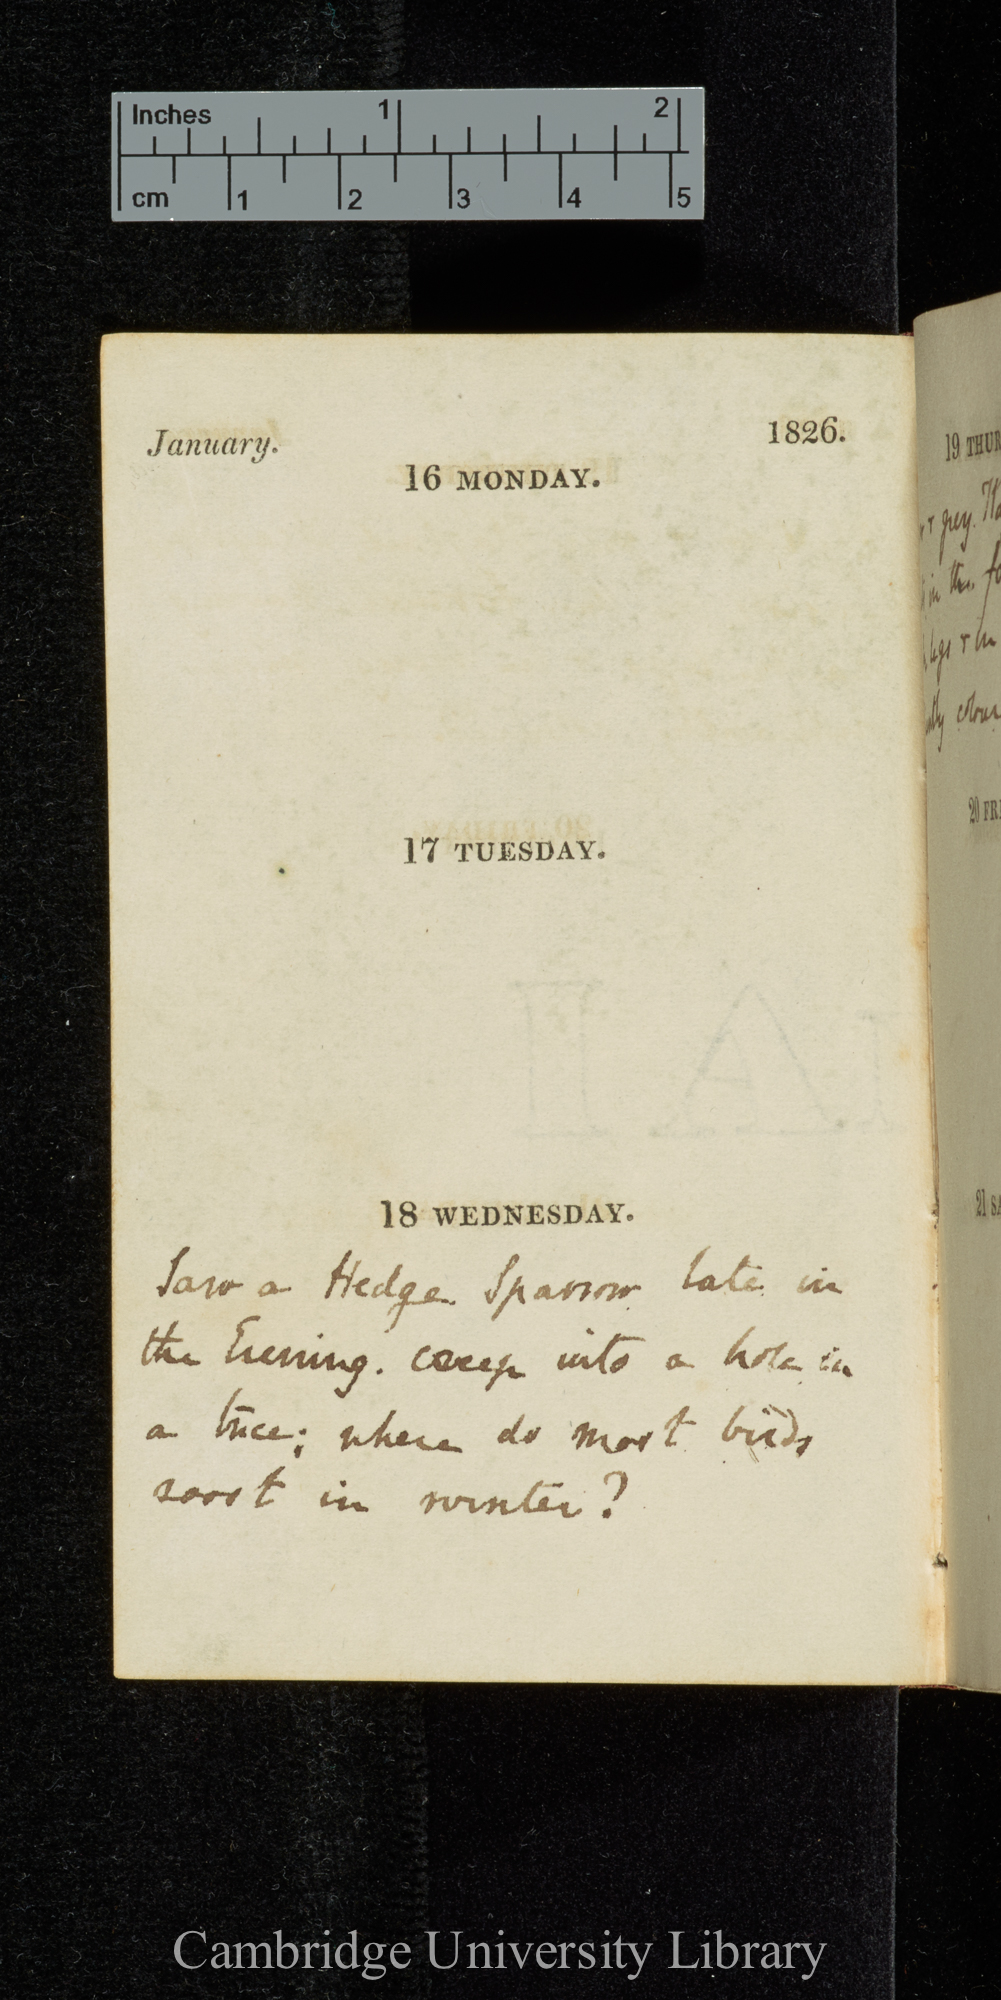 Inches 1 2
cm 1 2 3 4 5
January. 1826.
16 MONDAY.
17 TUESDAY.
18 WEDNESDAY.
Saw a Hedge Sparrow late in
the Evening. creep into a hole in
a tree; where do most birds
roost in winter?
19 THUR
& grey.
in the
legs &
colour
20 FRI
21 SA
Cambridge University Library